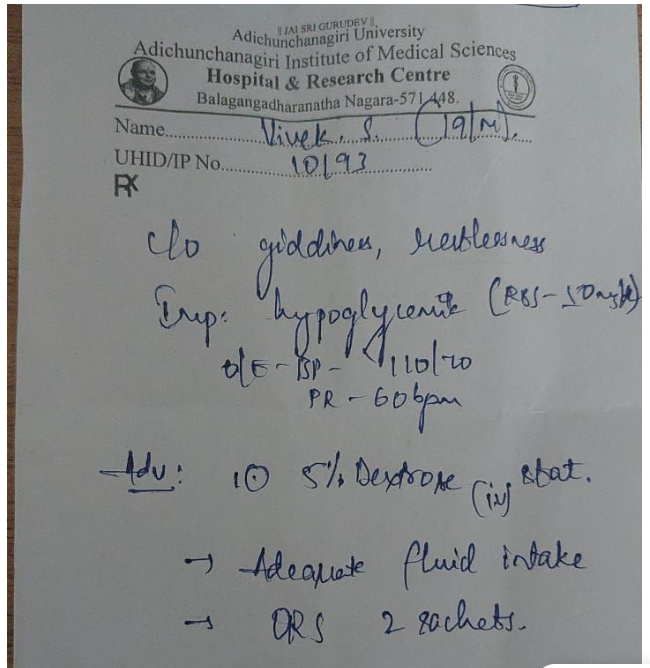 || JAI SRI GURUDEV ||
Adichunchanagiri University
Adichunchanagiri Institute of Medical Sciences
Hospital & Research Centre
Balagangadharanatha Nagara-571 448.
Name.......... Vivek. S. (19/M).
UHID/IP No.......... 10193
Rx
c/o giddiness, restlessness
Imp: hypoglycemic (RBS - 50mg/dl)
O/E - BP - 110/70
PR - 60bpm
Adv: 1) 5% Dextrose (iv) stat.
→ Adequate fluid intake
→ ORS 2 sachets.